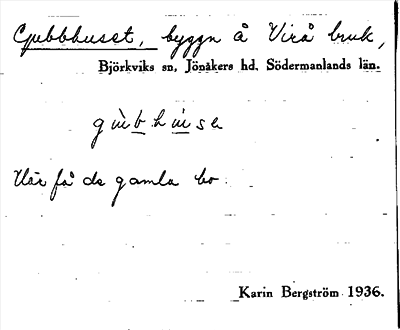 Gubbhuset, byggn å Virå bruk,
Björkviks sn, Jönåkers hd, Södermanlands län.
gu̇̀bhu̇̀sə
Här få de gamla bo.
Karin Bergström 1936.